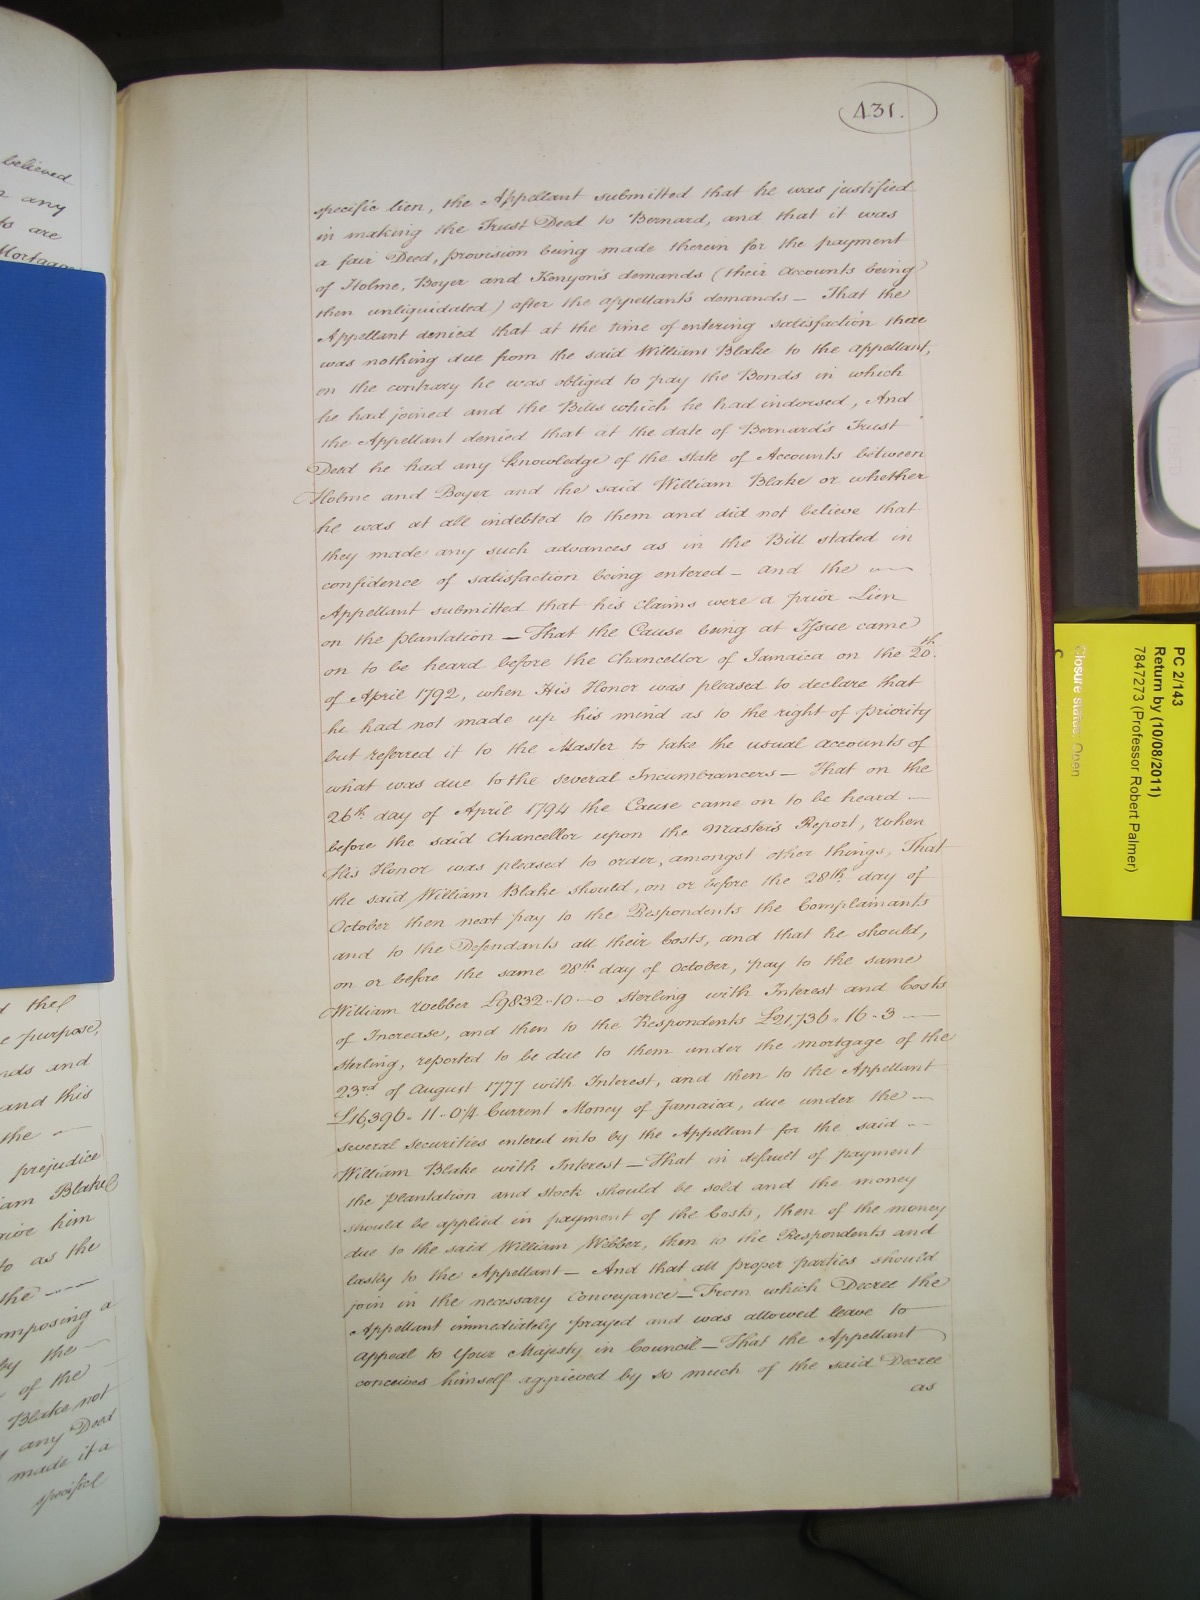 believed
any
ts are
Mortgage
d the
e purpose,
nds and
and this
the
prejudice
iam Blake
give him
to as the
the
omposing a
by the
of the
Blake not
y any Deed
made it a
specifick
431.
specific lien, the Appellant submitted that he was justified
in making the Trust Deed to Bernard, and that it was
a fair Deed, provision being made therein for the payment
of Holme, Boyer and Kenyon's demands (their accounts being
then unliquidated) after the appellant's demands — That the
Appellant denied that at the time of entering satisfaction there
was nothing due from the said William Blake to the appellant,
on the contrary he was obliged to pay the Bonds in which
he had joined and the Bills which he had indorsed, And
the Appellant denied that at the date of Bernard's Trust
Deed he had any knowledge of the state of Accounts between
Holme and Boyer and the said William Blake or whether
he was at all indebted to them and did not believe that
they made any such advances as in the Bill stated in
confidence of satisfaction being entered — and the
Appellant submitted that his claims were a prior Lien
on the plantation — That the Cause being at Issue came
on to be heard before the Chancellor of Jamaica on the 20th
of April 1792, when His Honor was pleased to declare that
he had not made up his mind as to the right of priority
but referred it to the Master to take the usual accounts of
what was due to the several Incumbrancers — That on the
26th day of April 1794 the Cause came on to be heard —
before the said Chancellor upon the Master's Report, when
His Honor was pleased to order, amongst other things, That
the said William Blake should, on or before the 28th day of
October then next pay to the Respondents the Complainants
and to the Defendants all their Costs, and that he should,
on or before the same 28th day of October, pay to the same
William Webber £9832-10-0 sterling with Interest and Costs
of Increase, and then to the Respondents £21,736-16-3 —
sterling, reported to be due to them under the mortgage of the
23rd of August 1777 with Interest, and then to the Appellant
£16,396-11-0¼ Current Money of Jamaica, due under the —
several securities entered into by the Appellant for the said —
William Blake with Interest — That in default of payment
the plantation and stock should be sold and the money
should be applied in payment of the Costs, then of the money
due to the said William Webber, then to the Respondents and
lastly to the Appellant — And that all proper parties should
join in the necessary Conveyance — From which Decree the
Appellant immediately prayed and was allowed leave to
appeal to Your Majesty in Council — That the Appellant
conceives himself aggrieved by so much of the said Decree
as
PC 2/143
Return by (10/08/2011)
7847273 (Professor Robert Palmer)
Closure status: Open